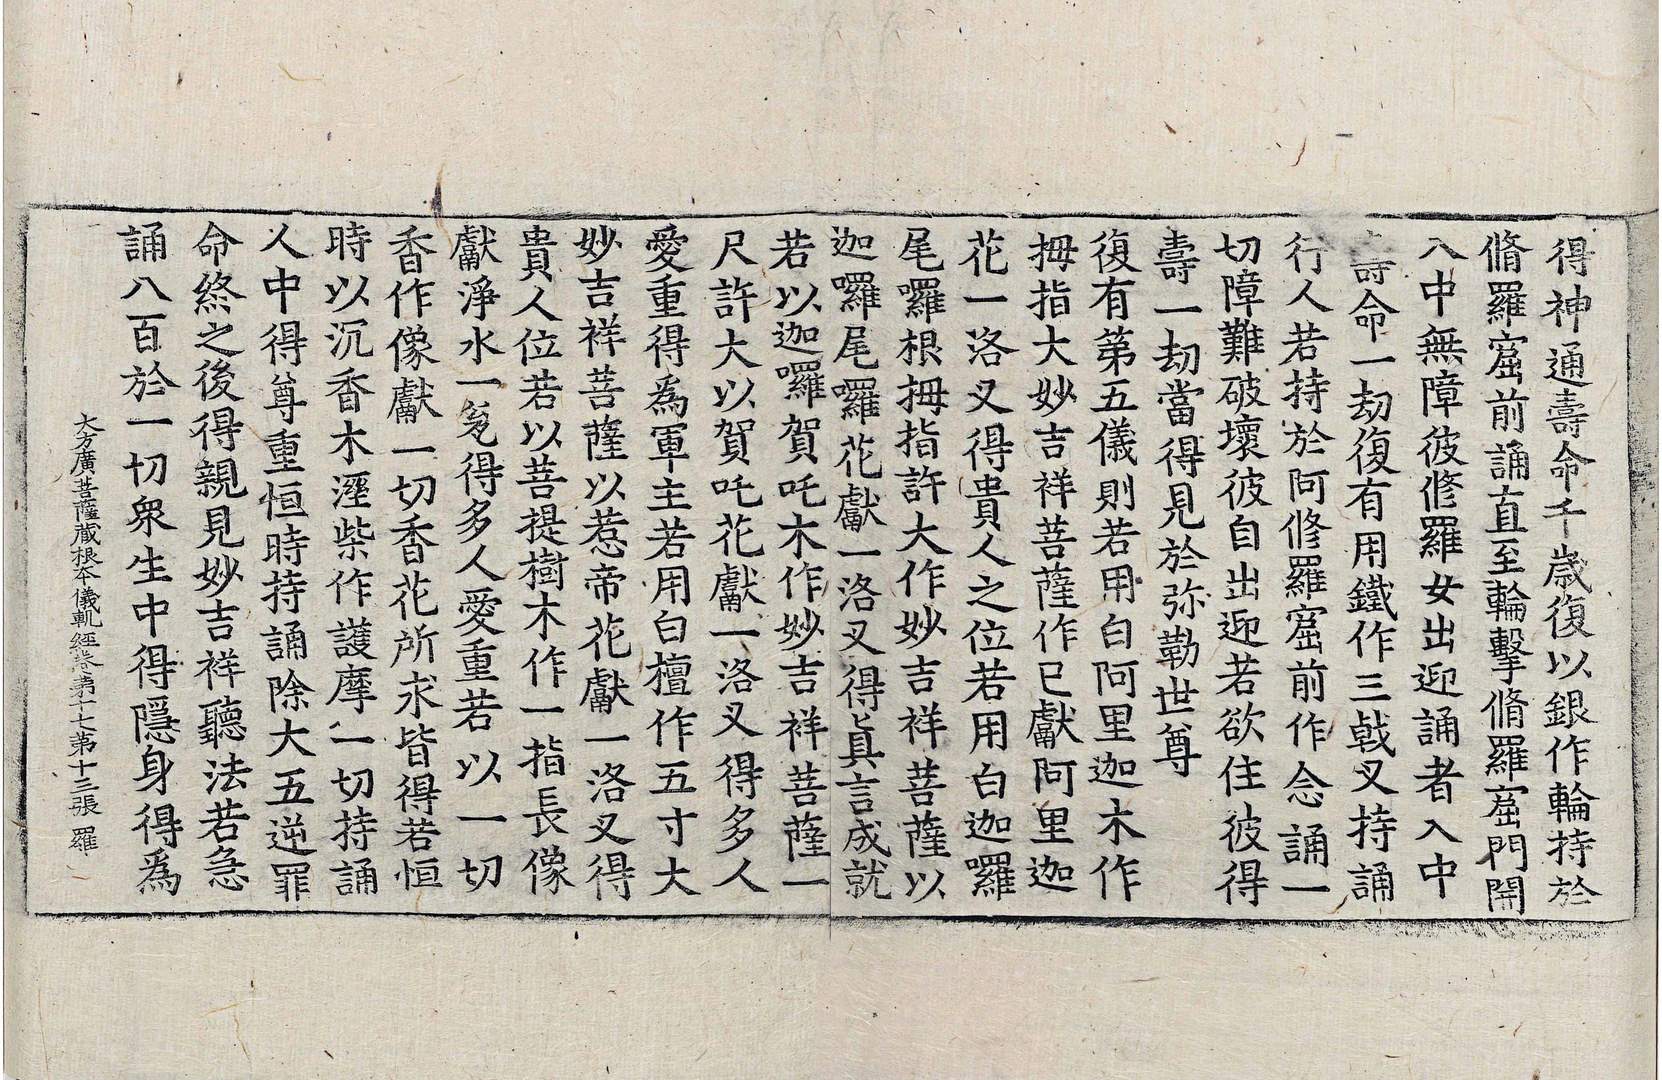 得神通壽命千歳復以銀作輪持於
脩羅窟前誦直至輪擊脩羅窟門開
入中無障彼修羅女出迎誦者入中
壽命一劫復有用鐵作三戟叉持誦
行人若持於阿修羅窟前作念誦一
切障難破壞彼自出迎若欲住彼得
壽一劫當得見於弥勒世尊
復有第五儀則若用白阿里迦木作
拇指大妙吉祥菩薩作已獻阿里迦
花一洛叉得貴人之位若用白迦囉
尾囉根拇指許大作妙吉祥菩薩以
迦囉尾囉花獻一洛叉得眞言成就
若以迦囉賀吒木作妙吉祥菩薩一
尺許大以賀吒花獻一洛叉得多人
愛重得為軍主若用白檀作五寸大
妙吉祥菩薩以惹帝花獻一洛叉得
貴人位若以菩提樹木作一指長像
獻淨水一㲋得多人愛重若以一切
香作像獻一切香花所求皆得若恒
時以沉香木溼柴作護摩一切持誦
人中得尊重恒時持誦除大五逆罪
命終之後得親見妙吉祥聽法若急
誦八百於一切衆生中得隱身得為
大方廣菩薩藏根本儀軌經卷第十七第十三張 羅